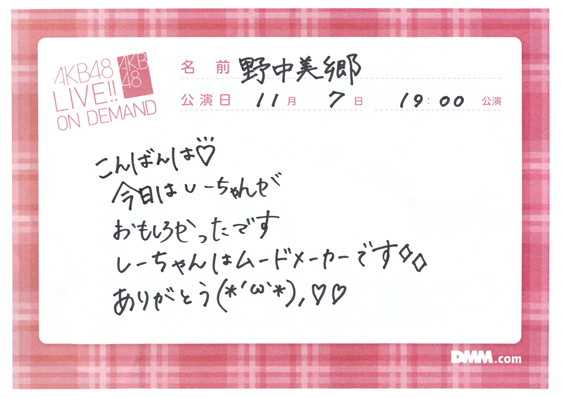 AKB48
LIVE!!
ON DEMAND
AKB
48
名前 野中美郷
公演日 11月 7日 19:00 公演
こんばんは♡
今日はしーちゃんが
おもしろかったです
しーちゃんはムードメーカーです◇◇
ありがとう(*´ω`*),♡♡
DMM.com